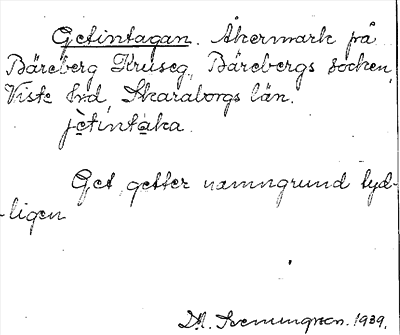 Getintagan. Åkermark på
Bäreberg Kruseg, Bärebergs socken,
Viste hrd, Skaraborgs län.
jètintàka.
Get, getter namngrund tyd-
ligen
D.A. 1939.